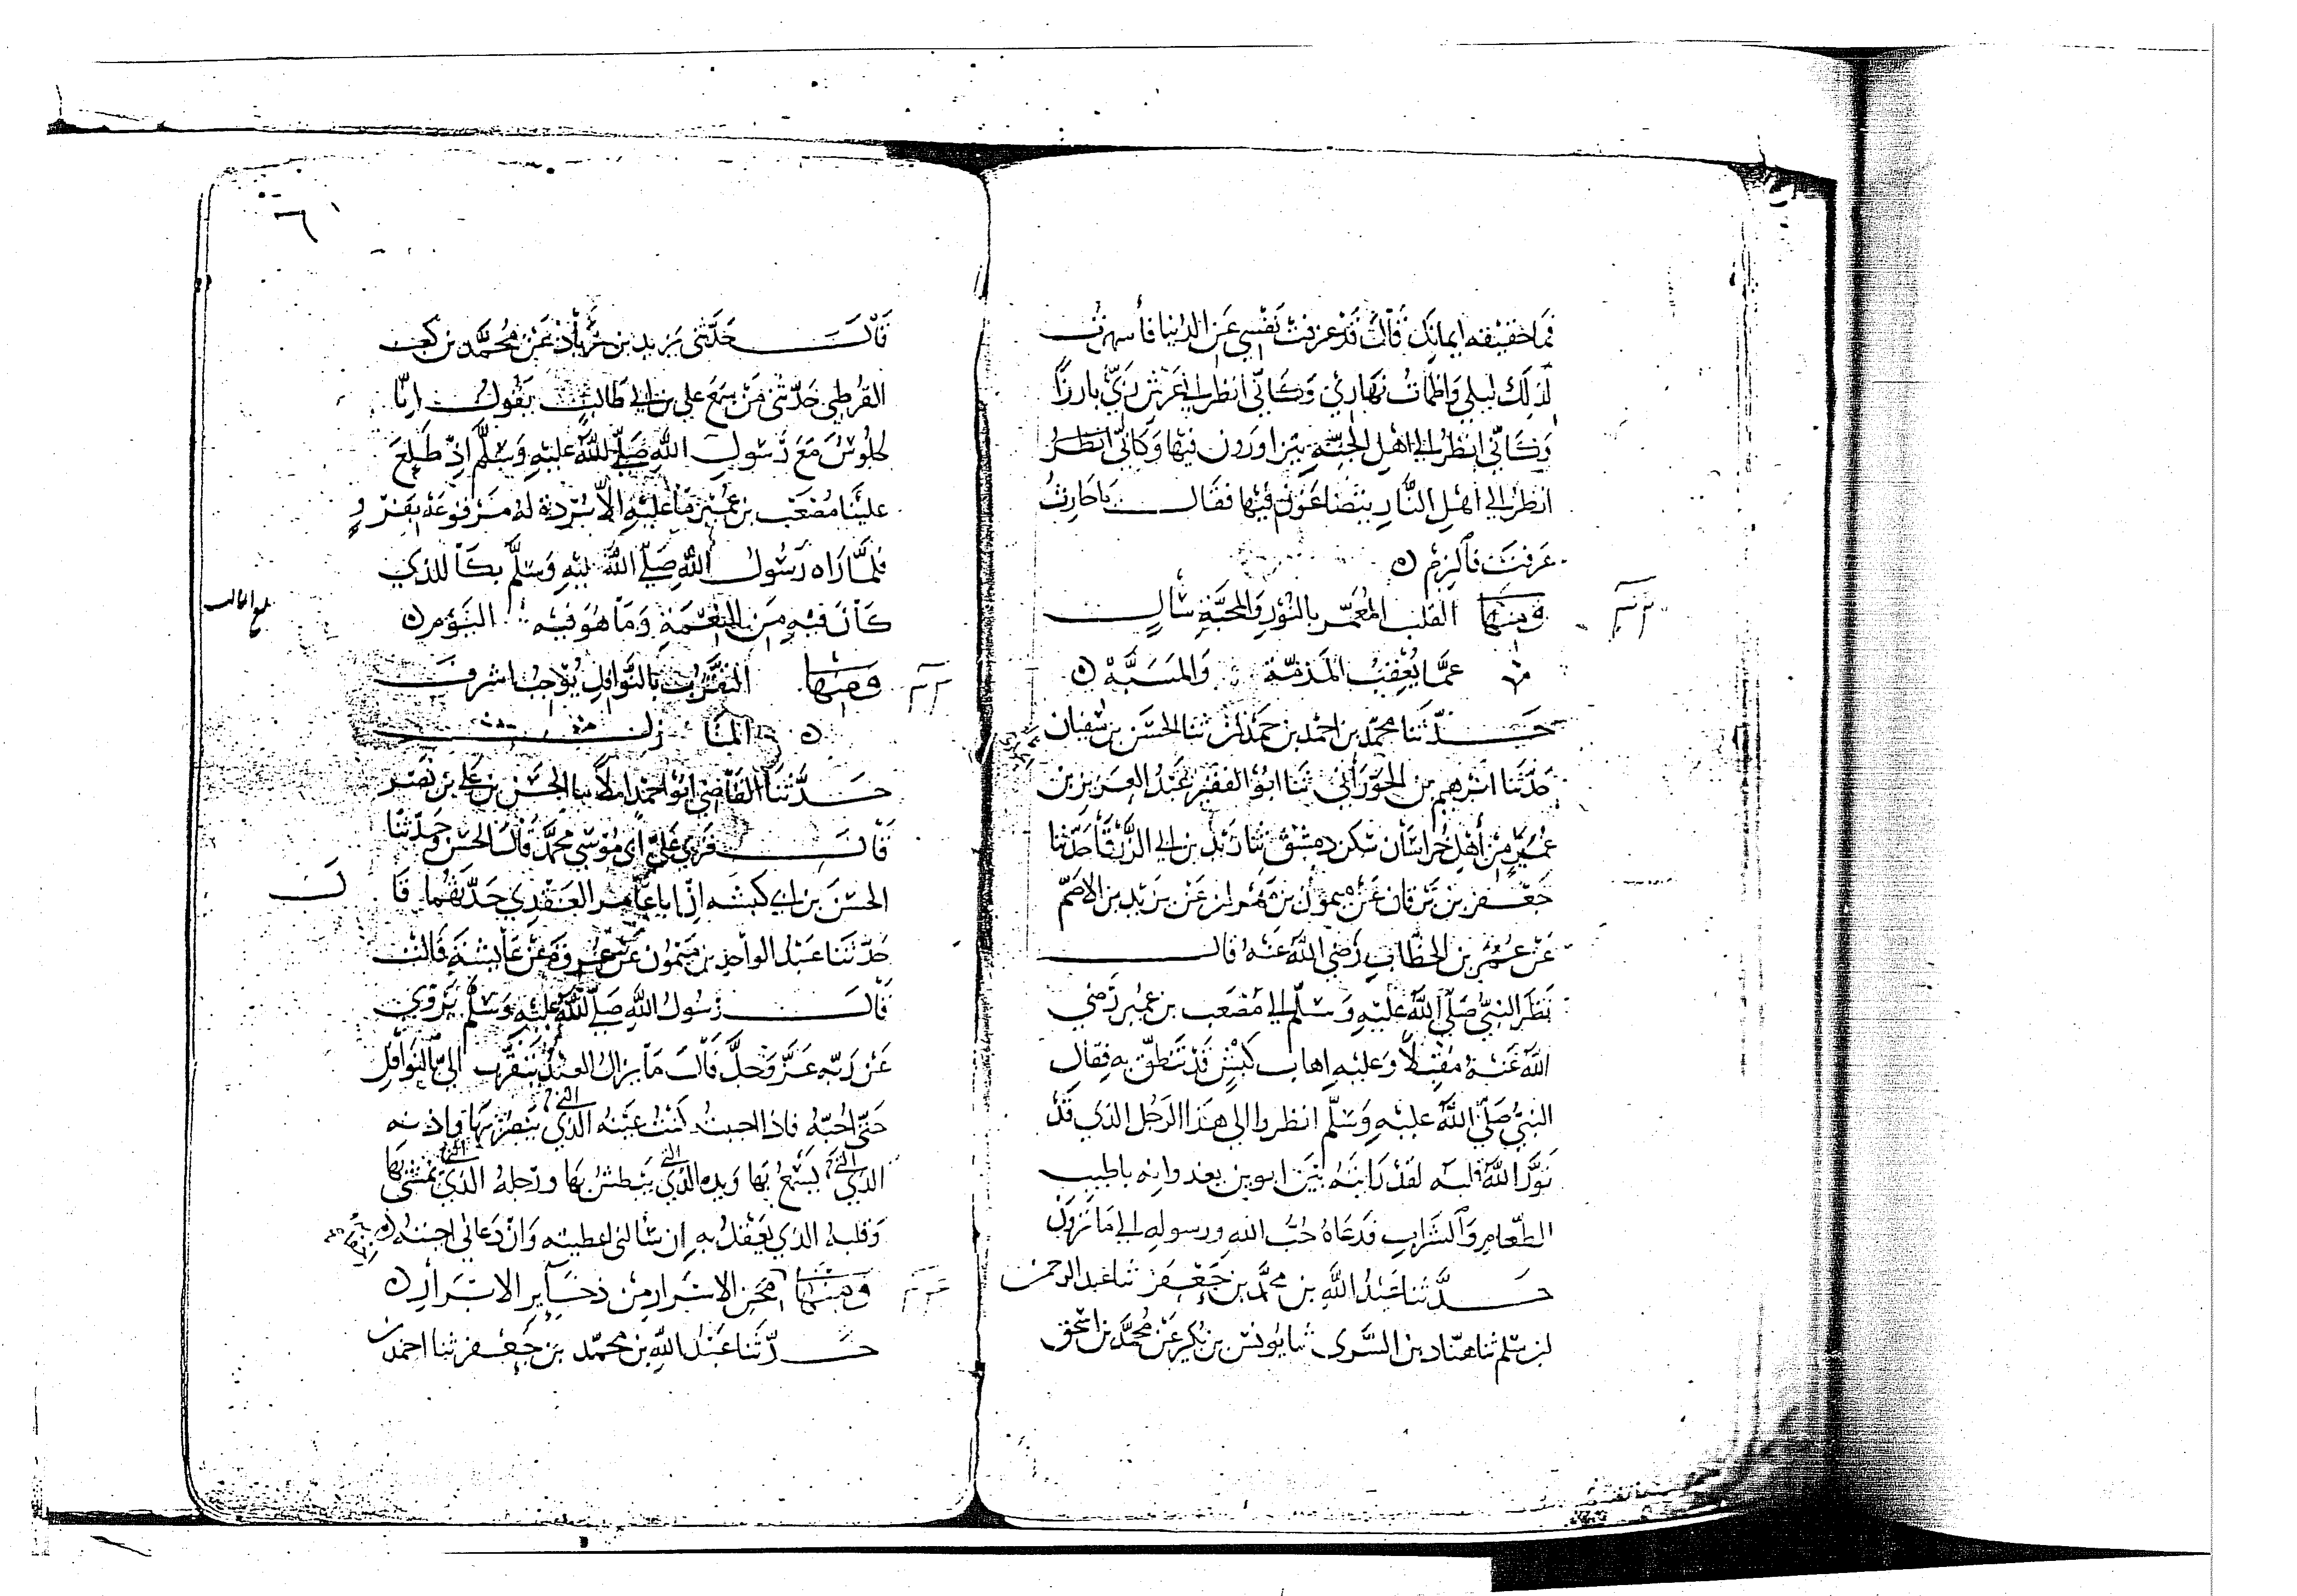 فما حقيقة ايمانك قالت قد عزفت نفسي عن الدنيا فأسهرت
لذلك ليلي واظمات نهاري وكاني انظر الى عرش ربي بارزا
وكاني انظر الى اهل الجنة يتزاورون فيها وكاني انظر
انظر الى اهل النار يتضاغون فيها فقال يا حارث
عرفت فالزم ه
ومنها القلب المعمر بالنور والمحبة سال
عما يعقب المذمة والمسبة ه
حدثنا محمد بن احمد بن حمدان ثنا الحسن بن سفيان
حدثنا ابرهيم بن الحوراني ثنا ابو الفقير عبد العزيز بن
عمير من أهل خراسان سكن دمشق ثنا زيد بن ابي الزرقا حدثنا
جعفر بن برقان عن ميمون بن مهران عن يزيد بن الاصم
عن عمر بن الخطاب رضي الله عنه قال
نظر النبي صلى الله عليه وسلم الى مصعب بن عمير رضي
الله عنه مقبلا وعليه اهاب كبش قد تنطق به فقال
النبي صلى الله عليه وسلم انظروا الى هذا الرجل الذي قد
نور الله قلبه لقد رايته بين ابوين يغدوانه باطيب
الطعام والشراب فدعاه حب الله ورسوله الى ما ترون
حدثنا عبد الله بن محمد بن جعفر ثنا عبد الرحمن
بن سلم ثنا هناد بن السرى ثنا يونس بن بكير عن محمد بن اسحق
٦
قال حدثني يزيد بن زياد عن محمد بن كعب
القرظي حدثني من سمع علي بن ابي طالب يقول انا
لجلوس مع رسول الله صلى الله عليه وسلم اذ طلع
علينا مصعب بن عمير ما عليه الا بردة له مرفوعة بفرو
فلما راه رسول الله صلى الله عليه وسلم بكا للذي
كان فيه من النعمة وما هو فيه اليوم ه
ومنها التقرب بالنوافل يوجب اشرف
المنازل ه
حدثنا القاضي ابو احمد املا ثنا الحسن بن علي بن نصر
قال قرئ على ابي موسى محمد قال الحسن وحدثنا
الحسن بن ابي كبشه ان ابا عامر العقدي حدثهما قال
حدثنا عبد الواحد بن ميمون عن عروة عن عايشة قالت
قال رسول الله صلى الله عليه وسلم يروي
عن ربه عز وجل قال ما يزال العبد يتقرب الي بالنوافل
حتى احبه فاذا احببته كنت عينه الذي التي يبصر بها واذنه
الذي التي يسمع بها ويده الذي التي يبطش بها ورجله الذي التي يمشي بها
وقلبه الذي يعقل به ان سالني اعطيته وان دعاني اجبته ه
ومنها محن الاسرار من ذخاير الابرار ه
حدثنا عبد الله بن محمد بن جعفر ثنا احمد بن